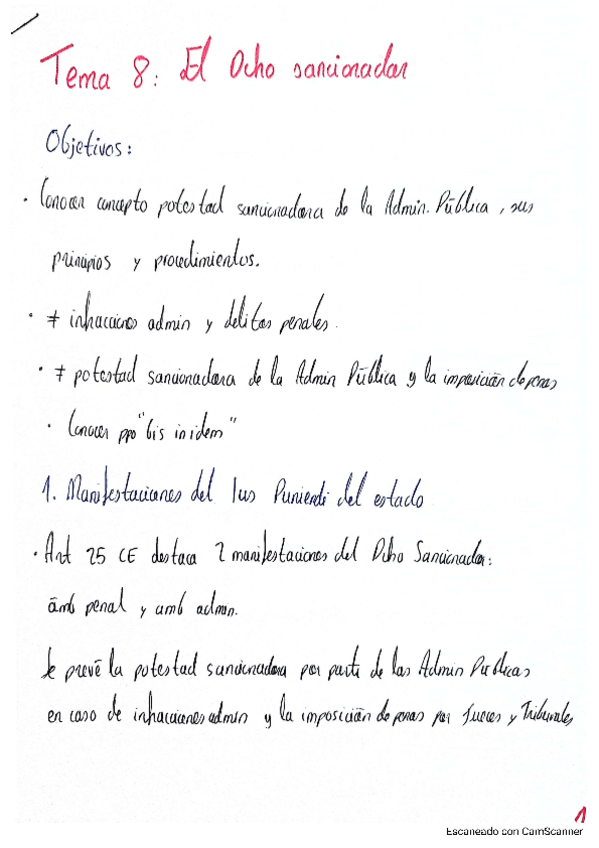 Tema 8: El Dcho sancionador
Objetivos:
· Conocer concepto potestad sancionadora de la Admin. Pública, sus
principios y procedimientos.
· ≠ infracciones admin y delitos penales.
· ≠ potestad sancionadora de la Admin Pública y la imposición de penas
· Conocer ppo "bis in idem"
1. Manifestaciones del Ius Puniendi del estado
· Art 25 CE destaca 2 manifestaciones del Dcho Sancionador:
ámb penal y amb admin.
Se prevé la potestad sancionadora por parte de las Admin Publicas
en caso de infracciones admin y la imposición de penas por Jueces y Tribunales
1
Escaneado con CamScanner